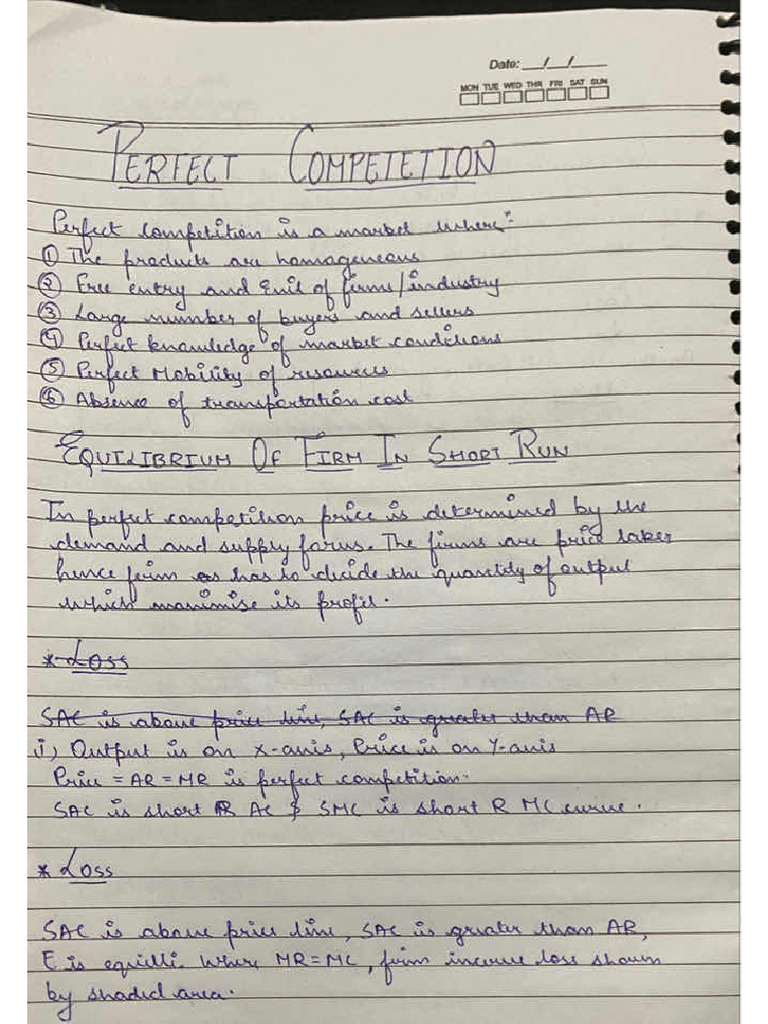 Date: __/__/____
MON TUE WED THR FRI SAT SUN
PERFECT COMPETETION
Perfect competition is a market where:-
① The products are homogeneous
② Free entry and Exit of firms/industry
③ Large number of buyers and sellers
④ Perfect knowledge of market conditions
⑤ Perfect Mobility of resources
⑥ Absence of transportation cost
EQUILIBRIUM OF FIRM IN SHORT RUN
In perfect competition price is determined by the
demand and supply forces. The firms are price taker
hence firm as has to decide the quantity of output
which maximise its profit.
* Loss
SAC is above price line, SAC is greater than AR
i) Output is on X-axis, Price is on Y-axis
Price = AR = MR is perfect competition.
SAC is short R AC & SMC is short R MC curve.
* Loss
SAC is above price line, SAC is greater than AR,
E is equilli. where MR=MC, firm incurve loss shown
by shaded area.